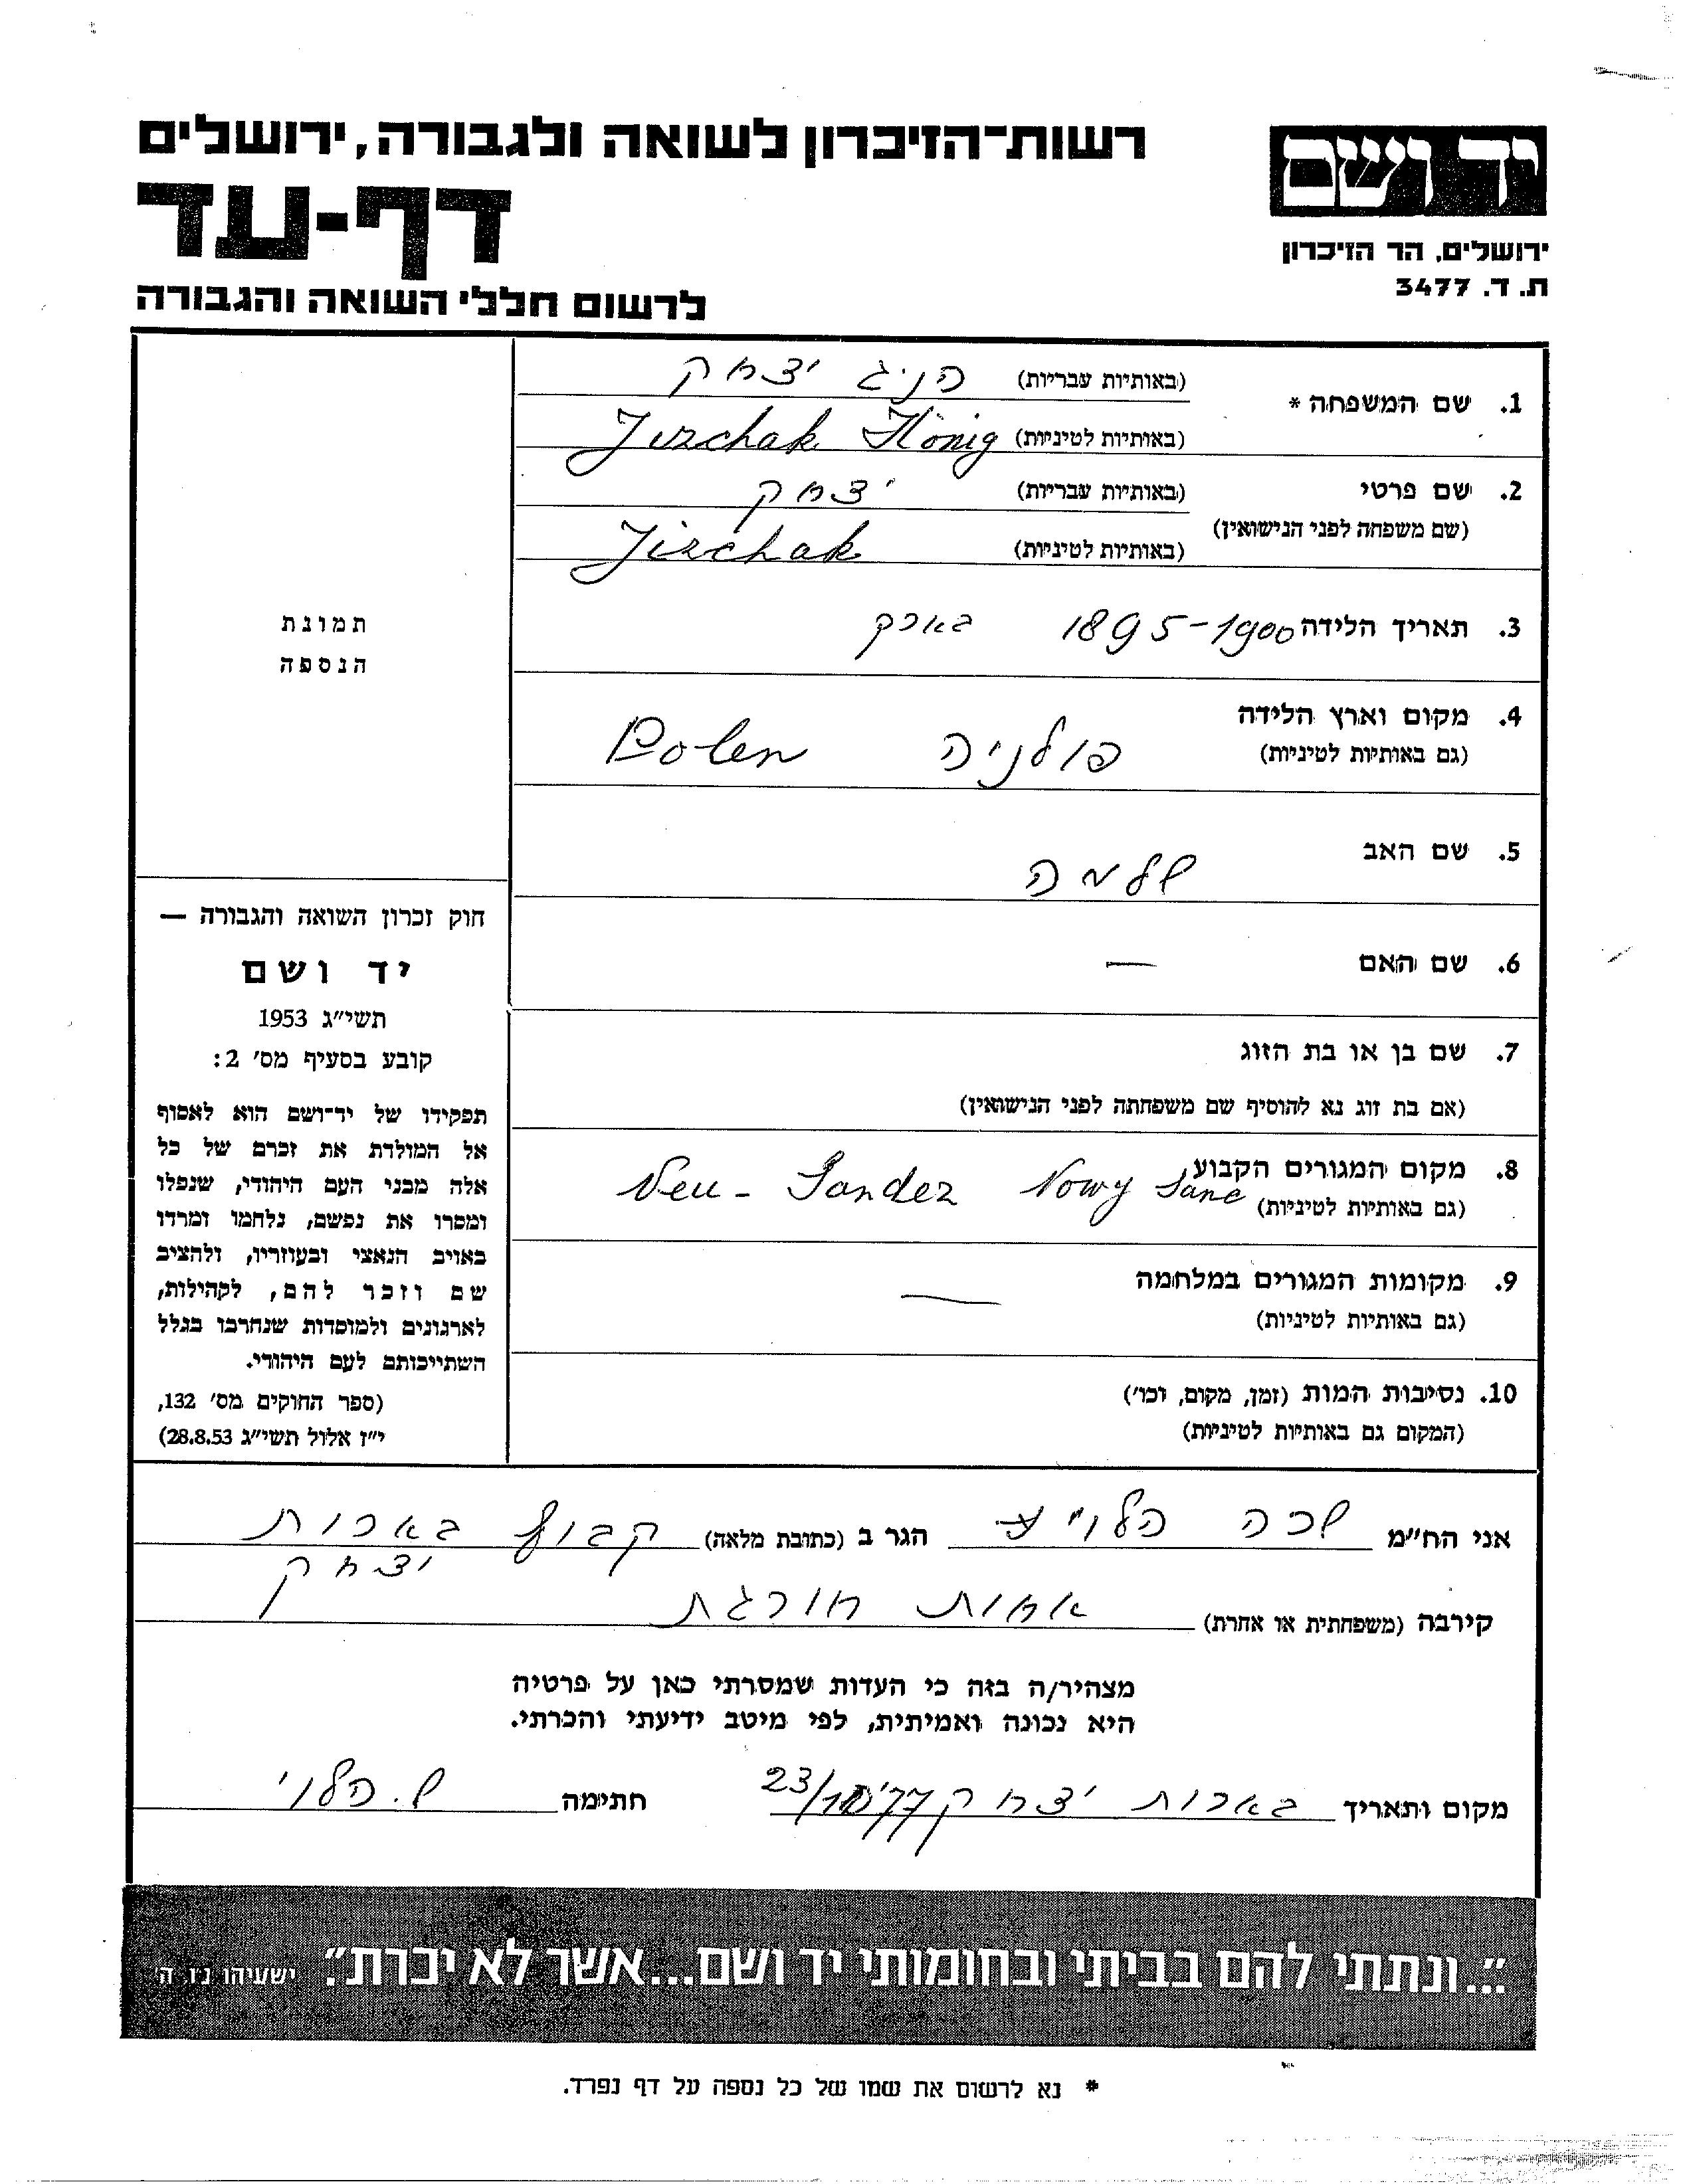 יד ושם
ירושלים, הר הזיכרון
ת. ד. 3477
רשות־הזיכרון לשואה ולגבורה, ירושלים
דף-עד
לרשום חללי השואה והגבורה
1. שם המשפחה * (באותיות עבריות) הניג יצחק
(באותיות לטיניות) Jizchak Hönig
2. שם פרטי (באותיות עבריות) יצחק
(שם משפחה לפני הנישואין)
(באותיות לטיניות) Jizchak
3. תאריך הלידה 1895-1900 בארק
4. מקום וארץ הלידה
(גם באותיות לטיניות) פולניה Polen
5. שם האב שלמה
6. שם האם —
7. שם בן או בת הזוג
(אם בת זוג נא להוסיף שם משפחתה לפני הנישואין)
8. מקום המגורים הקבוע Neu-Sandez Nowy Sanc
(גם באותיות לטיניות)
9. מקומות המגורים במלחמה —
(גם באותיות לטיניות)
10. נסיבות המות (זמן, מקום, וכו')
(המקום גם באותיות לטיניות)
תמונת
הנספה
חוק זכרון השואה והגבורה —
יד ושם
תשי״ג 1953
קובע בסעיף מס׳ 2:
תפקידו של יד־ושם הוא לאסוף
אל המולדת את זכרם של כל
אלה מבני העם היהודי, שנפלו
ומסרו את נפשם, נלחמו ומרדו
באויב הנאצי ובעוזריו, ולהציב
שם וזכר להם, לקהילות,
לארגונים ולמוסדות שנחרבו בגלל
השתייכותם לעם היהודי.
(ספר החוקים מס׳ 132,
י״ז אלול תשי״ג 28.8.53)
אני הח״מ שרה הלוי הגר ב (כתובת מלאה) קבוץ בארות
יצחק
קירבה (משפחתית או אחרת) אחות חורגת
מצהיר/ה בזה כי העדות שמסרתי כאן על פרטיה
היא נכונה ואמיתית, לפי מיטב ידיעתי והכרתי.
מקום ותאריך בארות יצחק 23/10/77 חתימה ש. הלוי
"...ונתתי להם בביתי ובחומותי יד ושם...אשר לא יכרת." ישעיהו נו ה'
* נא לרשום את שמו של כל נספה על דף נפרד.